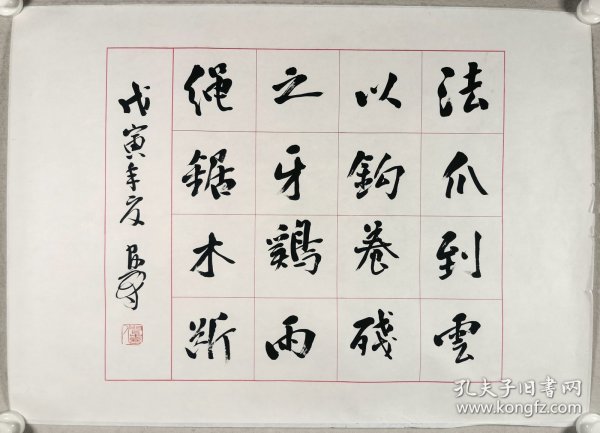 绳之以法
鋸牙鈎爪
木鷄养到
断雨殘雲
戊寅年夏
孔夫子旧书网
www.kongfz.com